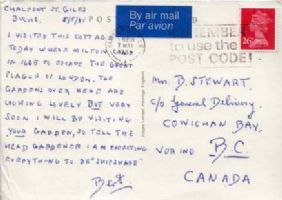 CHALFONT ST. GILES
BUCKS. 8/5/81
POST
I VISITED THIS COTTAGE
TODAY WHERE MILTON CAME
IN 1665 TO ESCAPE THE GREAT
PLAGUE OF LONDON. THE
GARDENS OVER HERE ARE
LOOKING LOVELY BUT VERY
SOON I WILL BE VISITING
YOUR GARDEN, SO TELL THE
HEAD GARDENER I AM EXPECTING
EVERYTHING TO BE "SHIPSHAPE"
Bert
By air mail
Par avion
to use the
POST CODE!
26
Mr. D. STEWART.
c/o General Delivery.
COWICHAN BAY.
B.C.
CANADA